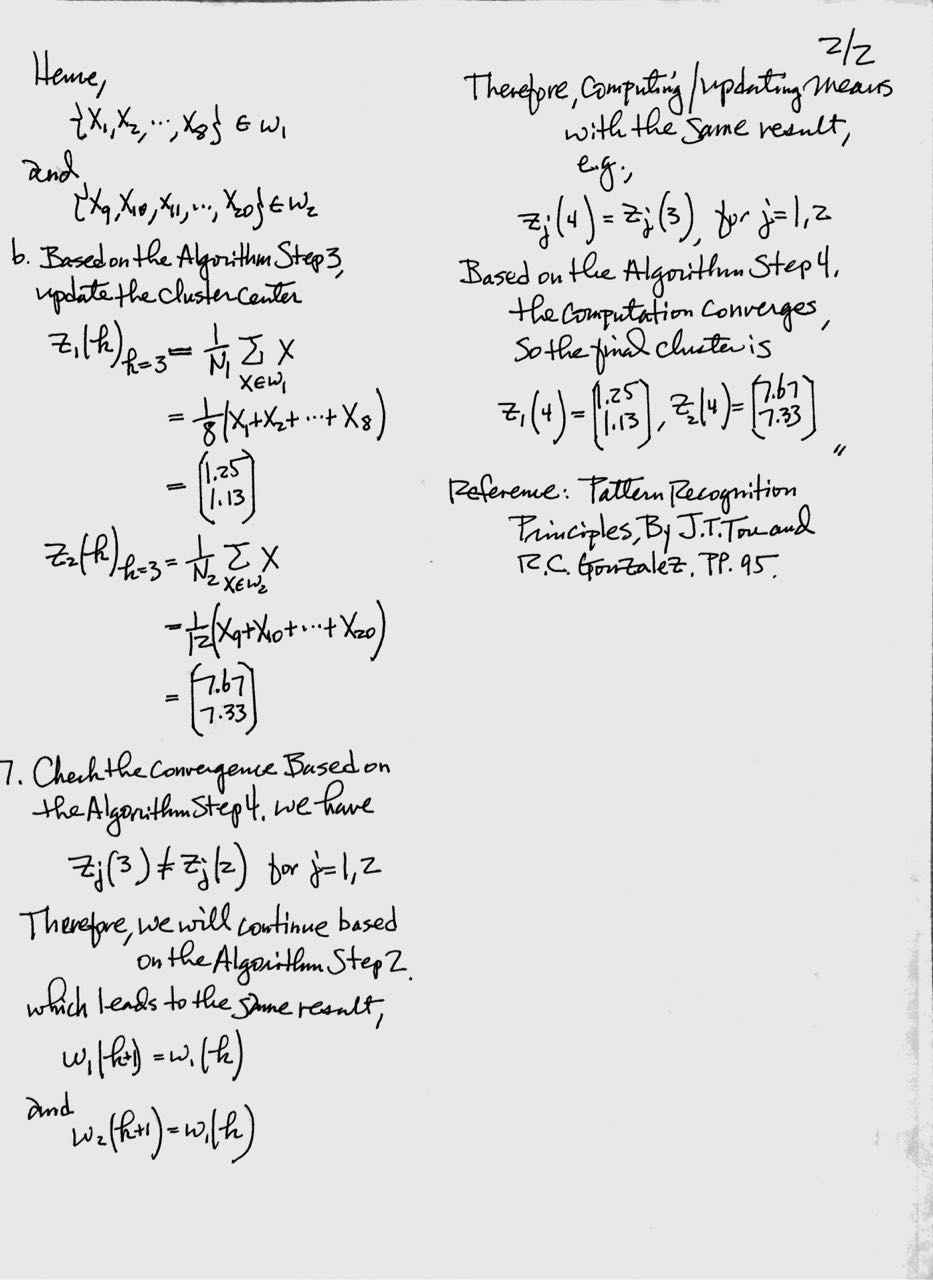 2/2
Hence,
{X₁, X₂, ..., X₈} ∈ w₁
and
{X₉, X₁₀, X₁₁, ..., X₂₀} ∈ w₂
6. Based on the Algorithm Step 3,
update the cluster center
z₁(k)ₖ₌₃ = 1/N₁ Σ X
X∈w₁
= 1/8 (X₁+X₂+...+X₈)
= (1.25
1.13)
z₂(k)ₖ₌₃ = 1/N₂ Σ X
X∈w₂
= 1/12 (X₉+X₁₀+...+X₂₀)
= (7.67
7.33)
7. Check the Convergence Based on
the Algorithm Step 4. we have
zⱼ(3) ≠ zⱼ(2) for j=1,2
Therefore, we will continue based
on the Algorithm Step 2.
which leads to the same result,
w₁(k+1) = w₁(k)
and
w₂(k+1) = w₁(k)
Therefore, Computing/updating means
with the same result,
e.g.,
zⱼ(4) = zⱼ(3), for j=1,2
Based on the Algorithm Step 4.
the Computation Converges,
So the final cluster is
z₁(4) = (1.25 1.13), z₂(4) = (7.67 7.33) "
Reference: Pattern Recognition
Principles, By J.T. Tou and
R.C. Gonzalez, PP. 95.